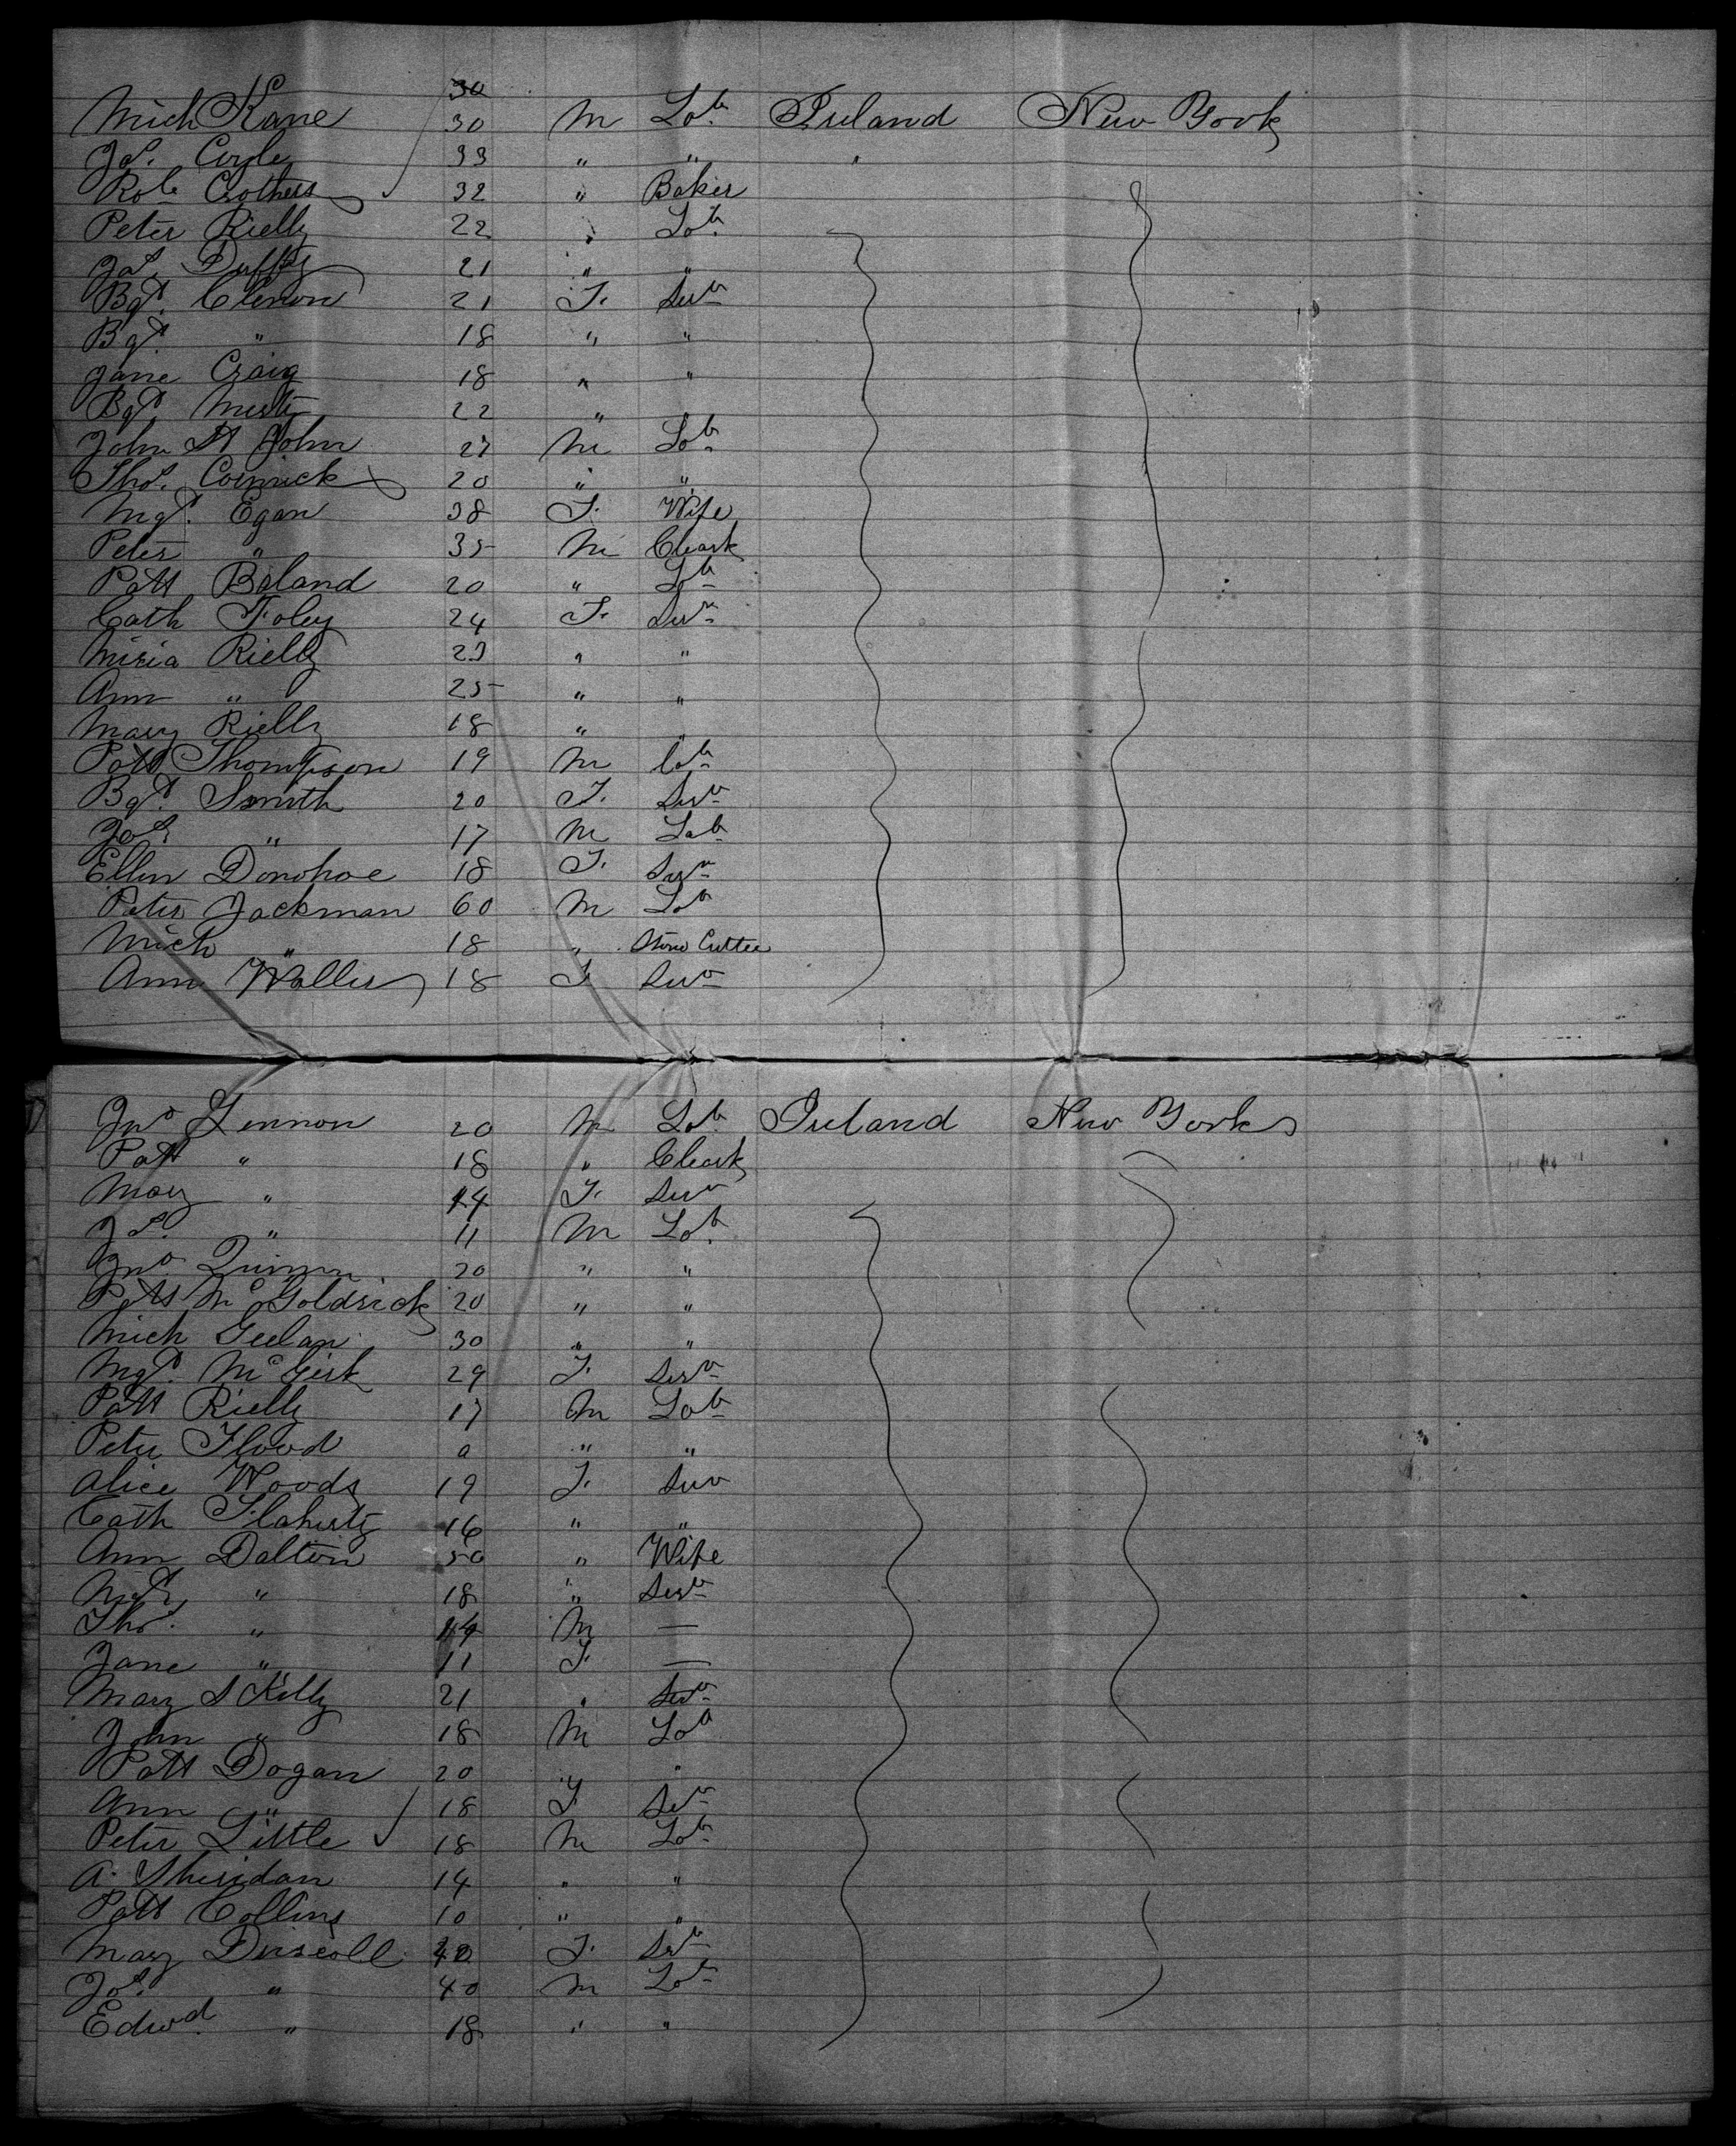 30
Mich Kane 30 M Lab. Ireland New York
Jas. Coyle 33 " " "
Robt Crothers 32 " Baker
Peter Rielly 22 " Lab.
Jas. Duffy 21 " "
Bgt. Clenon 21 F. Serv
Bgt. " 18 " "
Jane Craig 18 " "
Bgt. 22 " "
John St John 27 M Lab
Thos. Cormick 20 " "
Mgt. Egan 38 F. Wife
Peter " 35 M Cleark
Patt Boland 20 " Lab
Cath Foley 24 F. Serv
Rielly 23 " "
Ann " 25 " "
Mary Rielly 18 " "
Patt Thompson 19 M Lab
Bgt. Smith 20 F. Serv
Jas. " 17 M Lab
Ellen Donohoe 18 F. Serv
Peter Jackman 60 M Lab
Mich " 18 " Stone Cutter
Ann Wallis 18 F Serv
Jno Lennon 20 M Lab. Ireland New York
Patt " 18 " Cleark
Mary " 14 F. Serv
Js. " 11 M Lab.
Jno Quinn 20 " "
Patt McGoldrick 20 " "
Mich Geelan 30 " "
Mgt. McGirk 29 F. Serv
Patt Rielly 17 M Lab
Peter Flood " "
Alice Woods 19 F. Serv
Cath Flaherty 16 " "
Ann Dalton 50 " Wife
Mgt. " 18 " Serv
Thos. " 14 M —
Jane " 11 F. —
Mary SKelly 21 " Serv
John " 18 M Lab
Patt Dogan 20 " "
Ann " 18 F Serv
Peter Little 18 M Lab
A. Sheridan 14 " "
Patt Collins 10 " "
Mary Driscoll 40 F. Serv
Jas. " 40 M Lab
Edwd. " 18 " "